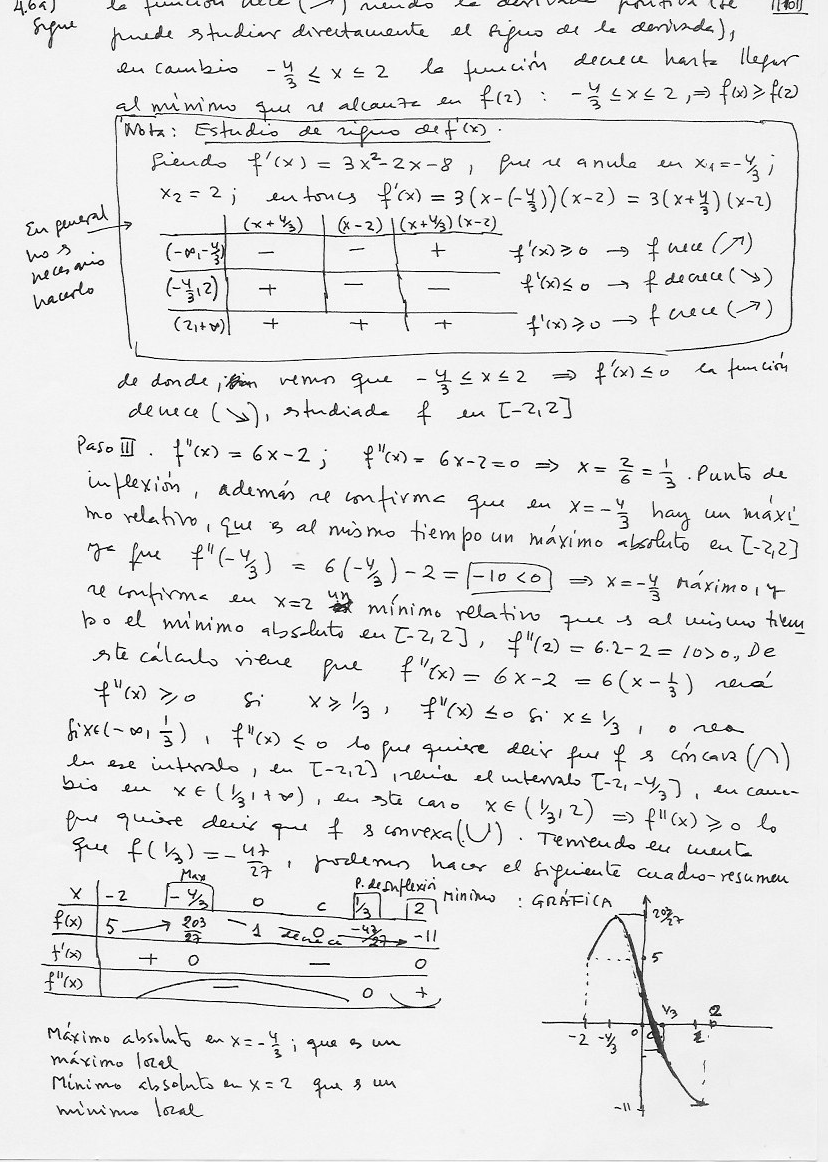 4.6a) la función crece (↗) siendo la derivada positiva (se
Sigue puede estudiar directamente el signo de la derivada),
en cambio -4/3 ≤ x ≤ 2 la función decrece hasta llegar
al mínimo que se alcanza en f(2) : -4/3 ≤ x ≤ 2, ⇒ f(x) ≥ f(2)
Nota: Estudio de signo de f'(x).
Siendo f'(x) = 3x²-2x-8, que se anula en x₁ = -4/3;
x₂ = 2; entonces f'(x) = 3(x-(-4/3))(x-2) = 3(x+4/3)(x-2)
En general
no es
necesario
hacerlo
(x+4/3) (x-2) (x+4/3)(x-2)
(-∞,-4/3) - - + f'(x) ≥ 0 → f crece (↗)
(-4/3,2) + - - f'(x) ≤ 0 → f decrece (↘)
(2,+∞) + + + f'(x) ≥ 0 → f crece (↗)
de donde, vemos que -4/3 ≤ x ≤ 2 ⇒ f'(x) ≤ 0 la función
decrece (↘), estudiada f en [-2,2]
Paso III. f''(x) = 6x-2; f''(x) = 6x-2 = 0 ⇒ x = 2/6 = 1/3. Punto de
inflexión, además se confirma que en x = -4/3 hay un máxi
mo relativo, que es al mismo tiempo un máximo absoluto en [-2,2]
ya que f''(-4/3) = 6(-4/3)-2 = -10<0 ⇒ x = -4/3 máximo, y
se confirma en x=2 un mínimo relativo que es al mismo tiem
po el mínimo absoluto en [-2,2], f''(2) = 6·2-2 = 10>0, De
este cálculo viene que f''(x) = 6x-2 = 6(x-1/3) será
f''(x) ≥ 0 si x ≥ 1/3, f''(x) ≤ 0 si x ≤ 1/3, o sea
Si x∈(-∞,1/3), f''(x) ≤ 0 lo que quiere decir que f es cóncava (∩)
en ese intervalo, en [-2,2], sería el intervalo [-2,-4/3], en cam-
bio en x∈(1/3,+∞), en este caso x∈(1/3,2) ⇒ f''(x) ≥ 0 lo
que quiere decir que f es convexa (∪). Teniendo en cuenta
que f(1/3) = -47/27, podemos hacer el siguiente cuadro-resumen
Max P. de Inflexión Mínimo : GRÁFICA
x -2 -4/3 0 c 1/3 2
f(x) 5 → 203/27 1 decrece 0 -47/27 → -11
f'(x) + 0 - 0
f''(x) - 0 +
Máximo absoluto en x = -4/3; que es un
máximo local
Mínimo absoluto en x = 2 que es un
mínimo local
203/27
5
-2 -4/3 0 c 1/3 2
-11